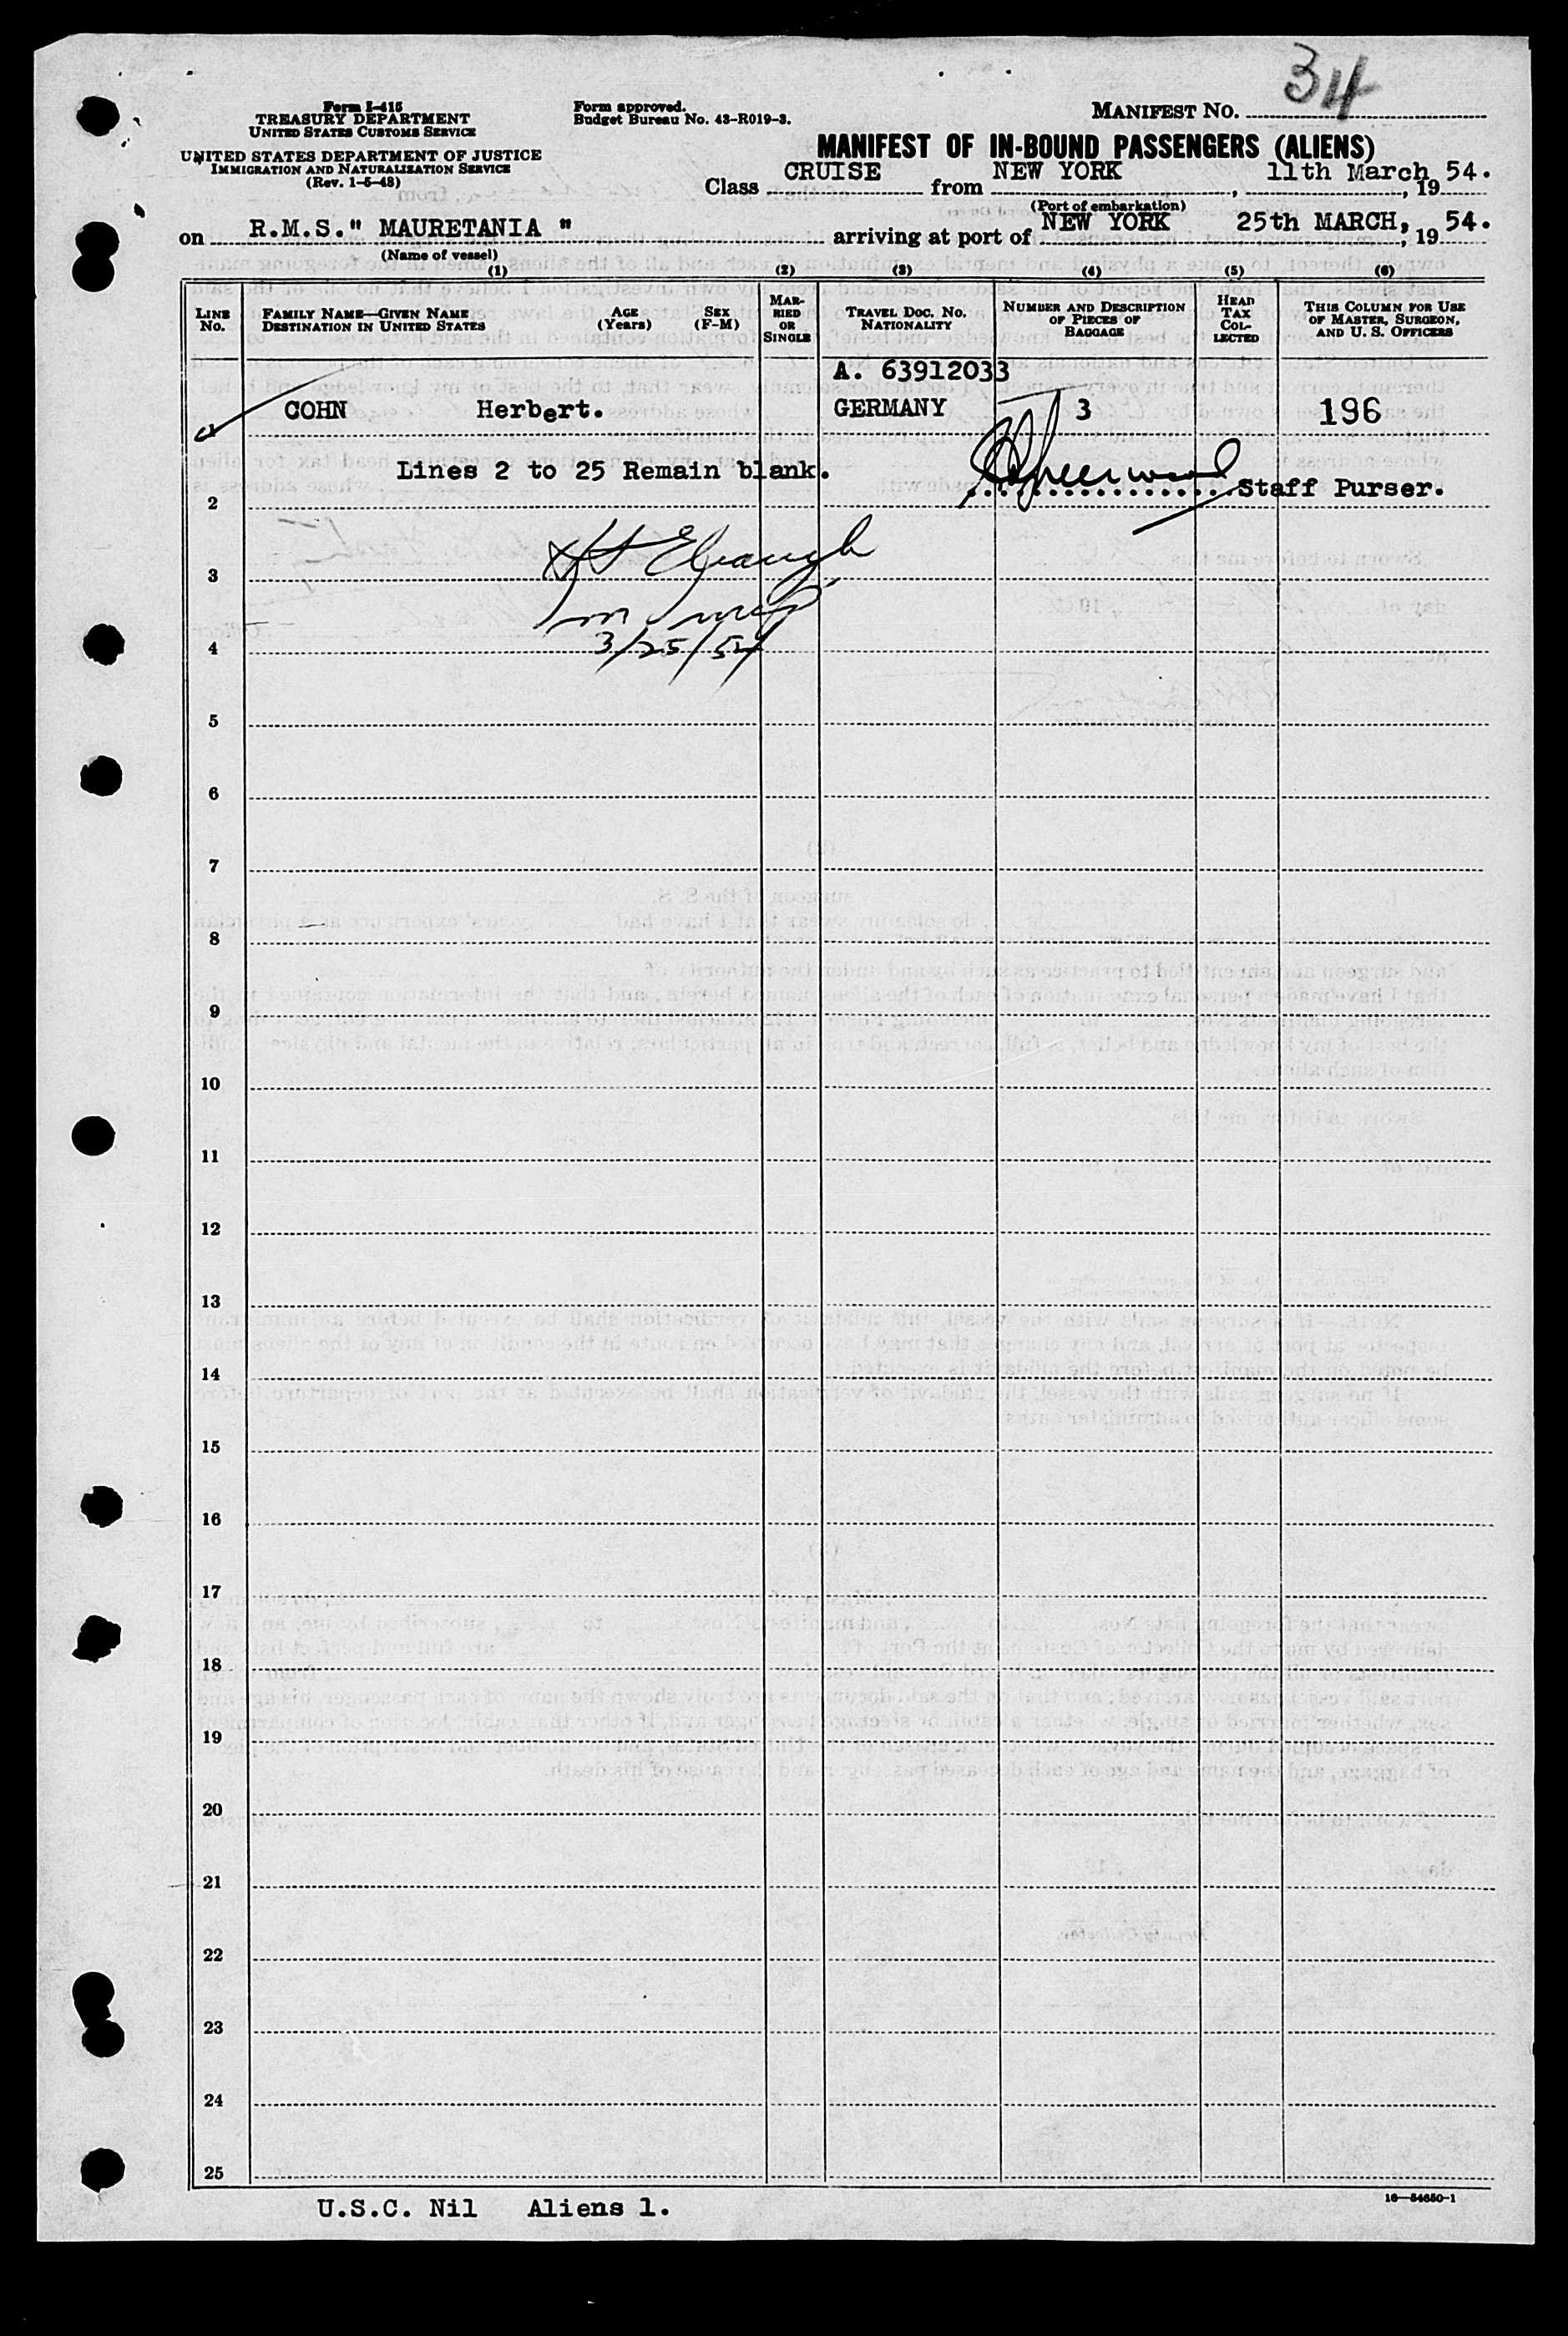 34
Form I-415
TREASURY DEPARTMENT
UNITED STATES CUSTOMS SERVICE
UNITED STATES DEPARTMENT OF JUSTICE
IMMIGRATION AND NATURALIZATION SERVICE
(Rev. 1-5-48)
Form approved.
Budget Bureau No. 43-R019-3.
MANIFEST NO.
MANIFEST OF IN-BOUND PASSENGERS (ALIENS)
Class CRUISE from NEW YORK, 11th March, 19 54.
(Port of embarkation)
on R.M.S." MAURETANIA " arriving at port of NEW YORK 25th MARCH, , 19 54.
(Name of vessel)
(1) (2) (3) (4) (5) (6)
LINE No.
FAMILY NAME—GIVEN NAME DESTINATION IN UNITED STATES
AGE (Years)
SEX (F-M)
MARRIED OR SINGLE
TRAVEL DOC. NO. NATIONALITY
NUMBER AND DESCRIPTION OF PIECES OF BAGGAGE
HEAD TAX COLLECTED
THIS COLUMN FOR USE OF MASTER, SURGEON, AND U. S. OFFICERS
A. 63912033
COHN Herbert. GERMANY 3 196
Lines 2 to 25 Remain blank.
Staff Purser.
2
3
4
3/25/54
5
6
7
8
9
10
11
12
13
14
15
16
17
18
19
20
21
22
23
24
25
U.S.C. Nil Aliens 1.
16—54650-1